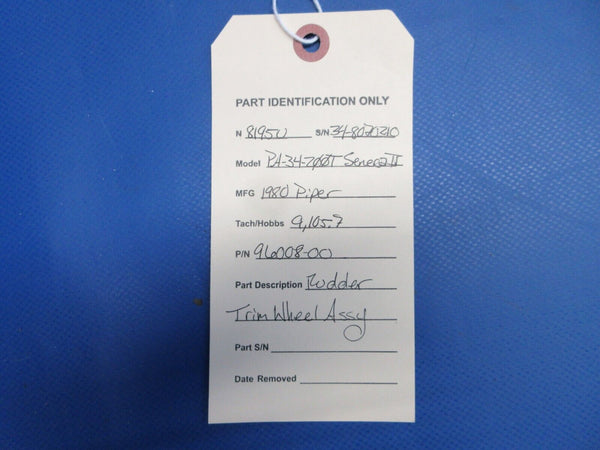 PART IDENTIFICATION ONLY
N 8195U S/N 34-8070210
Model PA-34-200T Seneca II
MFG 1980 Piper
Tach/Hobbs 9,105.7
P/N 96008-00
Part Description Rudder
Trim Wheel Assy
Part S/N
Date Removed